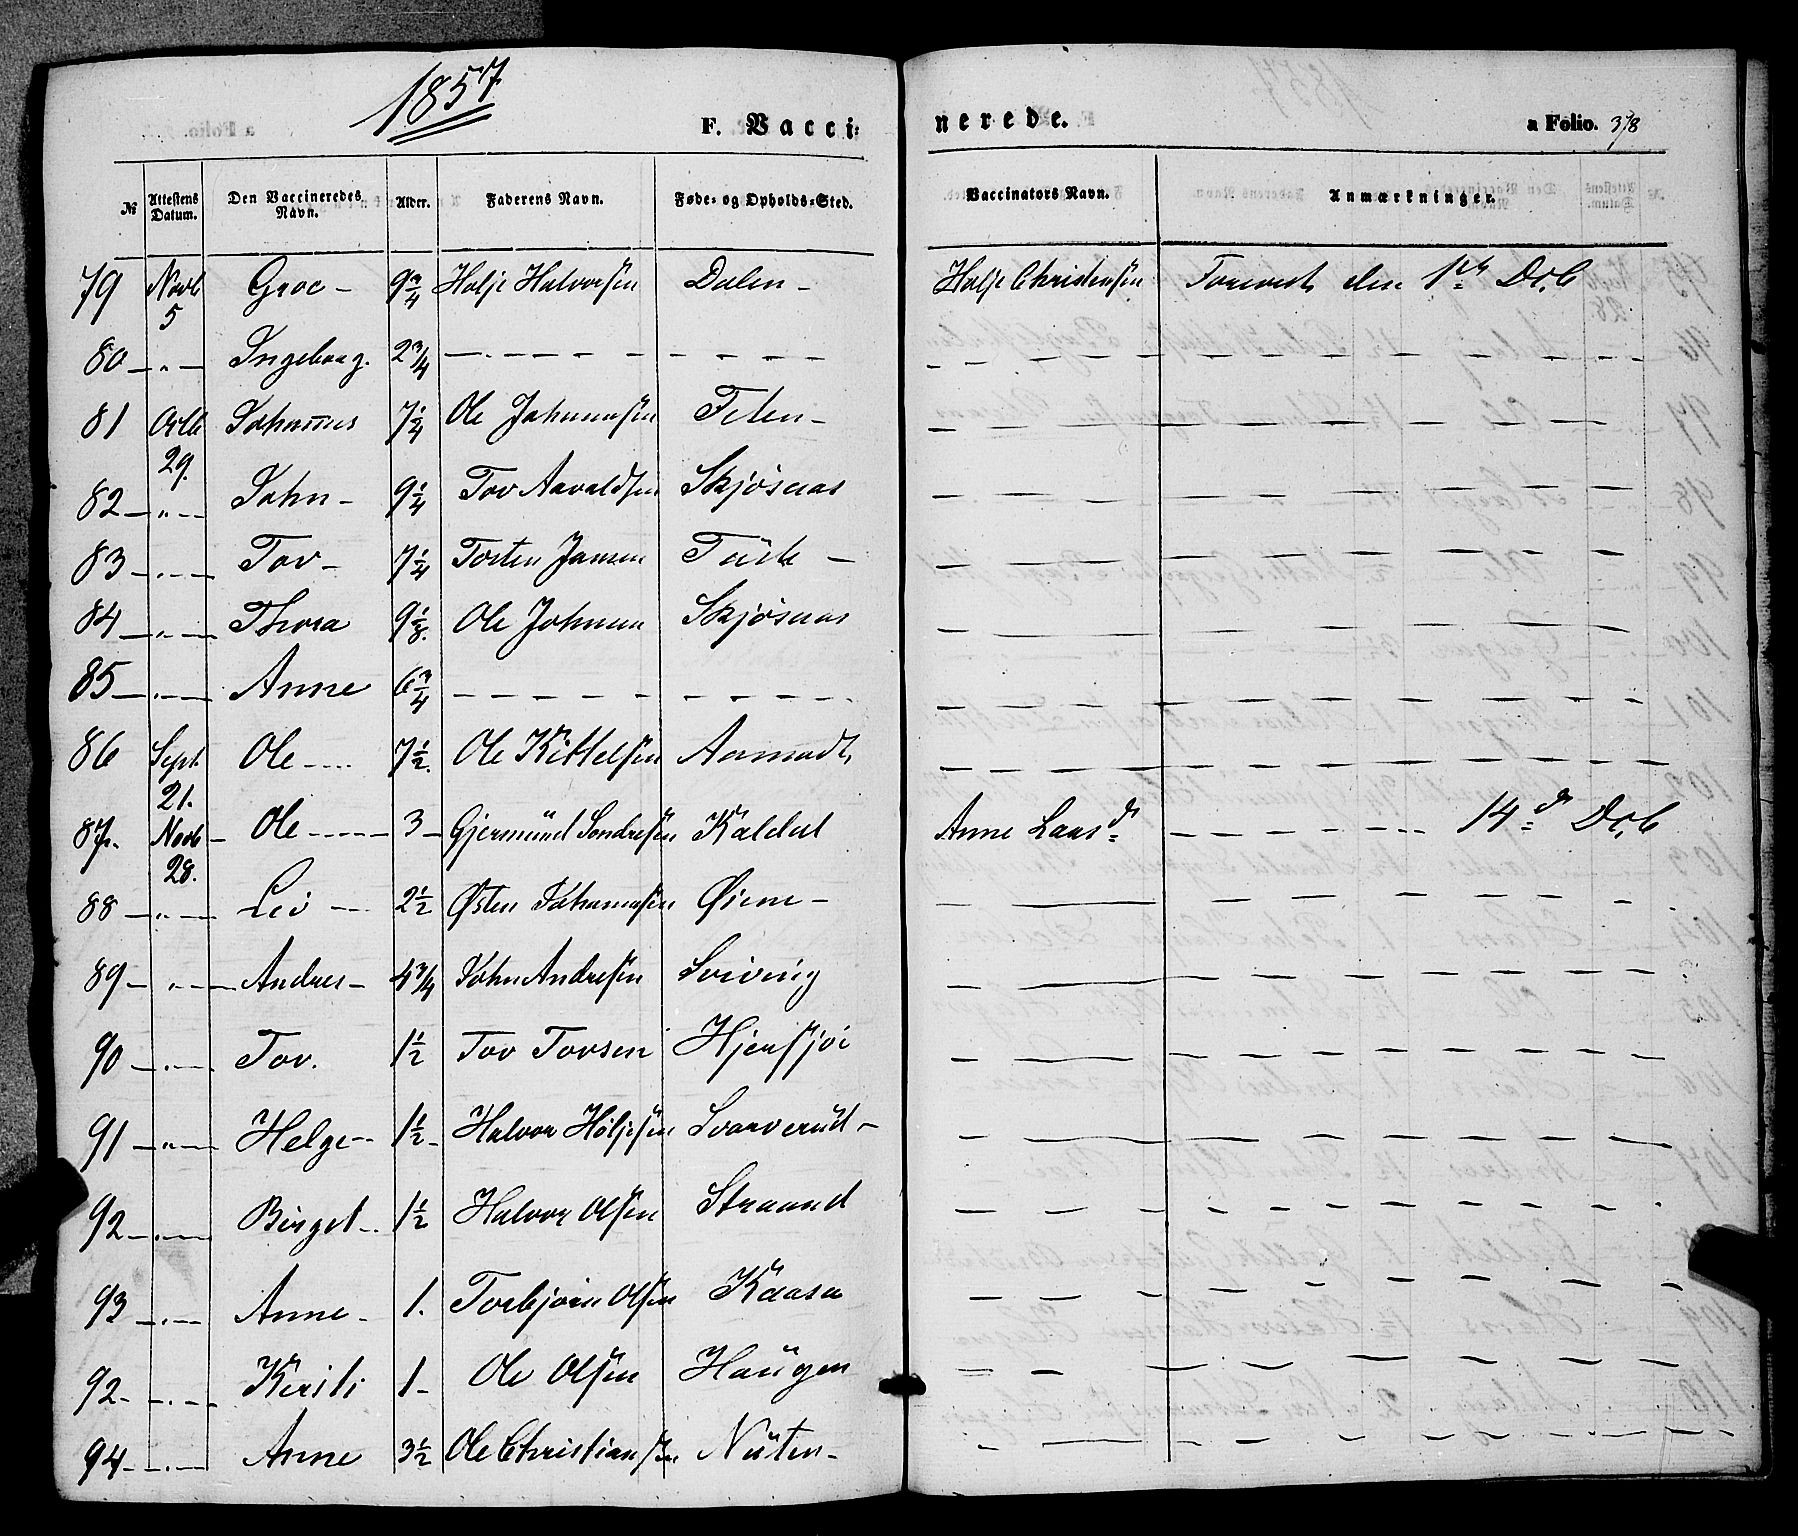 1857
F. Vaccinerede. a Folio. 378
№ Attestens Datum. Den Vaccineredes Navn. Alder. Faderens Navn. Føde- og Opholds-Sted. Vaccinators Navn. Anmærkninger.
79 Novb 5 Groe - 9 3/4 Holje Halvorsen Dalen - Holje Christensen Forevist den 1ste Dcb
80 - " - Ingeborg. 2 3/4 - - - - - - - -
81 Octb 29. Johannes 7 1/4 Ole Johannesen Teten - - - -
82 - " - John - 9 1/4 Tov Aavaldsen Skjösaas - - -
83 - " - Tov - 7 1/4 Torten Jansen - - - -
84 - " - Thora 9 1/8. Ole Johnsen Skjösaas - - -
85 - " - Anne 6 3/4 - - - - - - - -
86 Sept 21. Ole - 7 1/2. Ole Kittelsen Aamodt - - -
87. Novb 28. Ole - 3 - Gjermünd Sondresen Kaldal Anne Laasd. - - - 14de Dcb
88 - " - Lei - 2 1/2 Østen Johannesen Øiene - - - -
89 - " - Andres - 4 3/4 John Andresen Sviving - - -
90 - " - Tov. 1 1/2 Tov Tovsen Hjersjøi - - -
91 - " - Helge - 1 1/2 - Halvor Høljesen Svarverüd - - - -
92 - " - Birgit - 1 1/2 Halvor Olsen Straand - - -
93 - " - Anne - 1. Torbjørn Olsen Kaasa - - -
92 - " - Kirsti 1 - Ole Olsen Haügen - - -
94 - " - Anne 3 1/2 Ole Christiansen Nüten - - - -